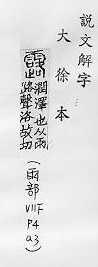 說文解字
大徐本
露
潤澤也从雨
路聲洛故切
(雨部 VII下 P4 a3)